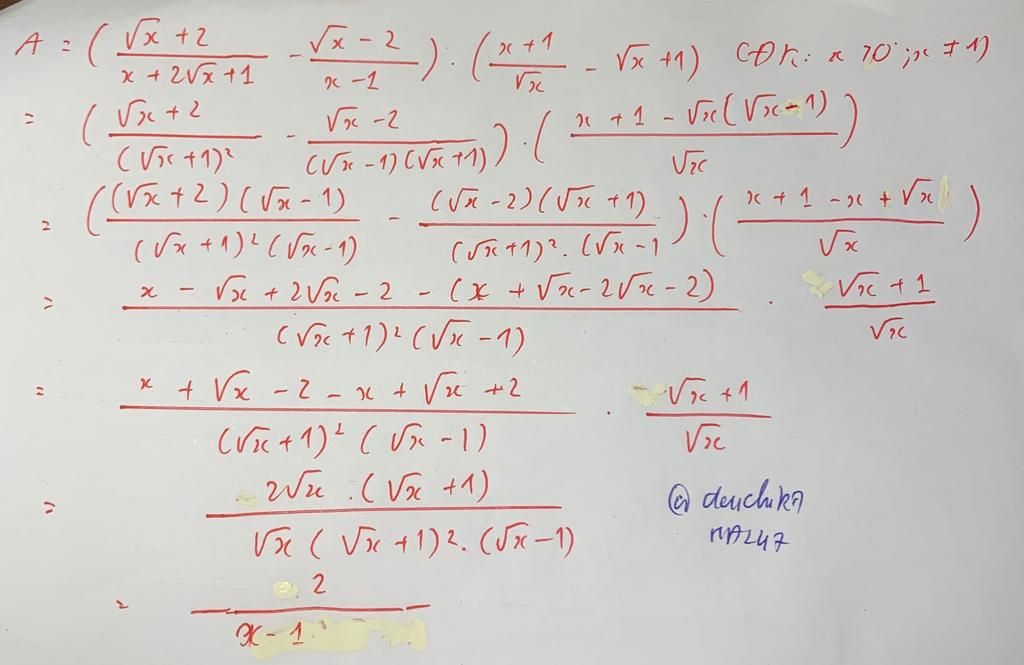 A = ( (√x + 2)/(x + 2√x + 1) - (√x - 2)/(x - 1) ) . ( (x + 1)/√x - √x + 1) (ĐK: x > 0 ; x ≠ 1)
= ( (√x + 2)/(√x + 1)² - (√x - 2)/((√x - 1)(√x + 1)) ) . ( (x + 1 - √x(√x - 1))/√x )
= ( ((√x + 2)(√x - 1))/((√x + 1)²(√x - 1)) - ((√x - 2)(√x + 1))/((√x + 1)². (√x - 1) ) . ( (x + 1 - x + √x)/√x )
= (x - √x + 2√x - 2 - (x + √x - 2√x - 2))/((√x + 1)²(√x - 1)) . (√x + 1)/√x
= (x + √x - 2 - x + √x + 2)/((√x + 1)² (√x - 1)) . (√x + 1)/√x
= (2√x . (√x + 1))/(√x (√x + 1)². (√x - 1))
= 2/(x - 1)